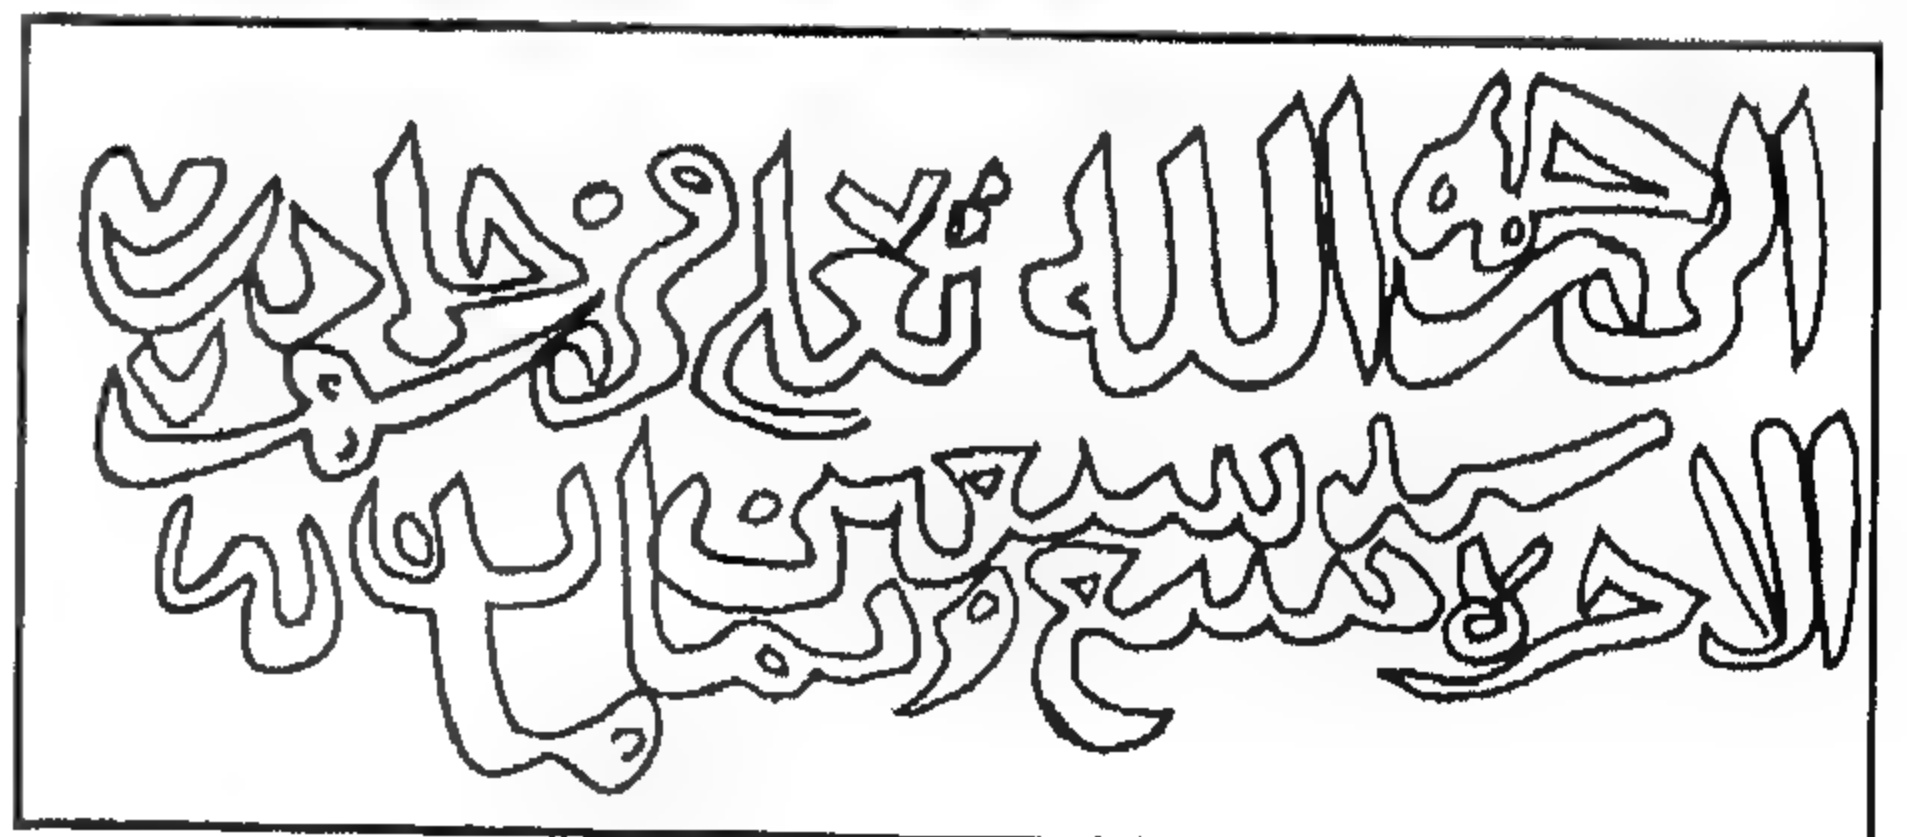 الى رحمة الله تعالى فى جمادى
الاخرة سنة تسع و ثمانمايه